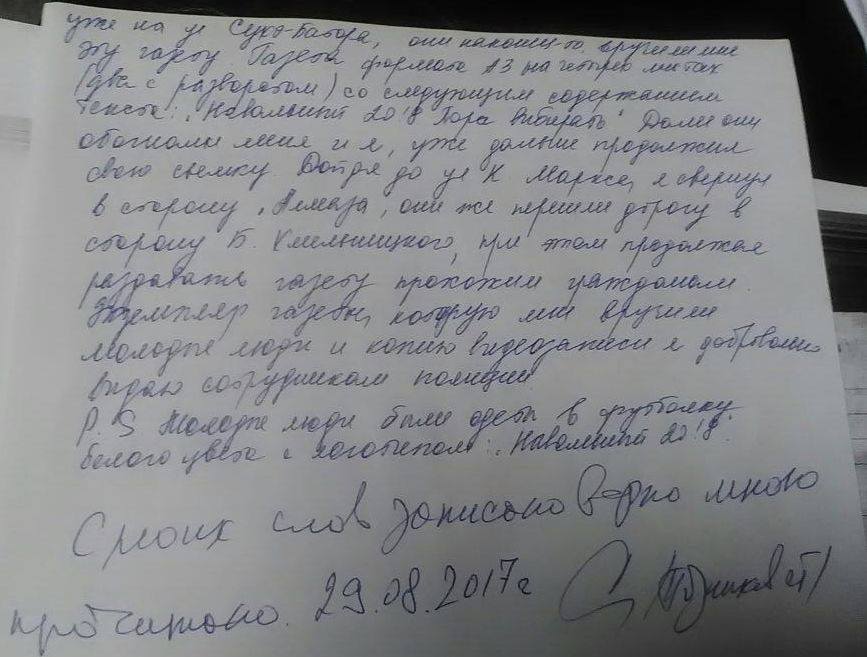 уже на ул Сухэ-Батора, они наконец-то вручили мне
эту газету. Газета формата А3 на четырёх листах
(два с разворотом) со следующим содержанием
текста: "Навальный 20!8 Пора выбирать" Далее они
обогнали меня и я, уже дальше продолжил
свою съемку. Дойдя до ул К. Маркса, я свернул
в сторону "Алмаза", они же перешли дорогу в
сторону Б. Хмельницкого, при этом продолжая
раздавать газету прохожим гражданам.
Экземпляр газеты, которую мне вручили
молодые люди и копию видеозаписи я добровольно
выдаю сотрудникам полиции.
P.S Молодые люди были одеты в футболку
белого цвета с логотипом: "Навальный 20!8".
С моих слов записано верно мною
прочитано. 29.08.2017г